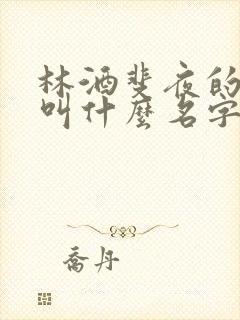 林酒斐夜的
叫什麼名字
喬丹